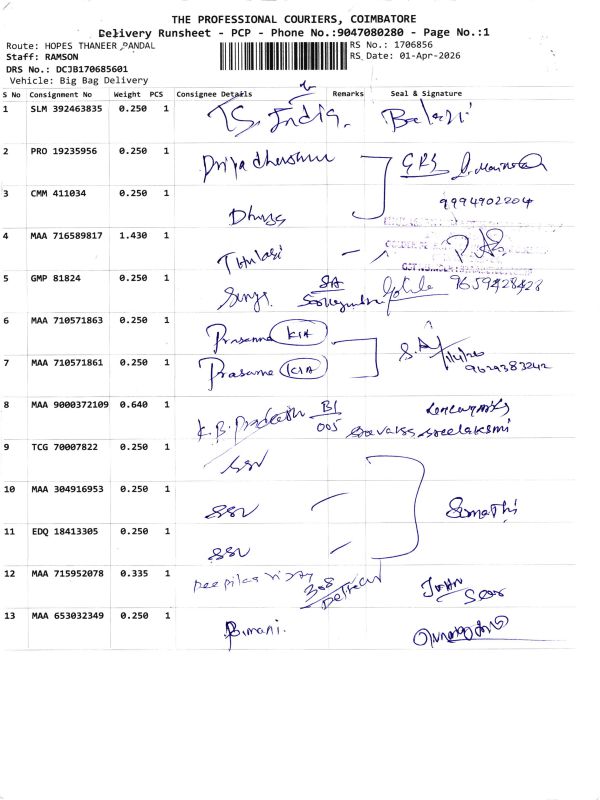 THE PROFESSIONAL COURIERS, COIMBATORE
Delivery Runsheet - PCP - Phone No.:9047080280 - Page No.:1
Route: HOPES THANEER PANDAL
RS No.: 1706856
Staff: RAMSON
RS Date: 01-Apr-2026
DRS No.: DCJB170685601
Vehicle: Big Bag Delivery
S No Consignment No Weight PCS Consignee Details Remarks Seal & Signature
1 SLM 392463835 0.250 1 TS. India. Balaji
2 PRO 19235956 0.250 1 Priya dharshini GRS
3 CMM 411034 0.250 1 9994902204
4 MAA 716589817 1.430 1 Thulasi
5 GMP 81824 0.250 1 9659428428
6 MAA 710571863 0.250 1 Prasanna KIA
7 MAA 710571861 0.250 1 Prasanna KIA S.A 9629383242
8 MAA 9000372109 0.640 1 K.B. Pradeeth B1 005 sreelakshmi
9 TCG 70007822 0.250 1 SSV
10 MAA 304916953 0.250 1 SSV Sumathi
11 EDQ 18413305 0.250 1 SSV
12 MAA 715952078 0.335 1 308 John
13 MAA 653032349 0.250 1